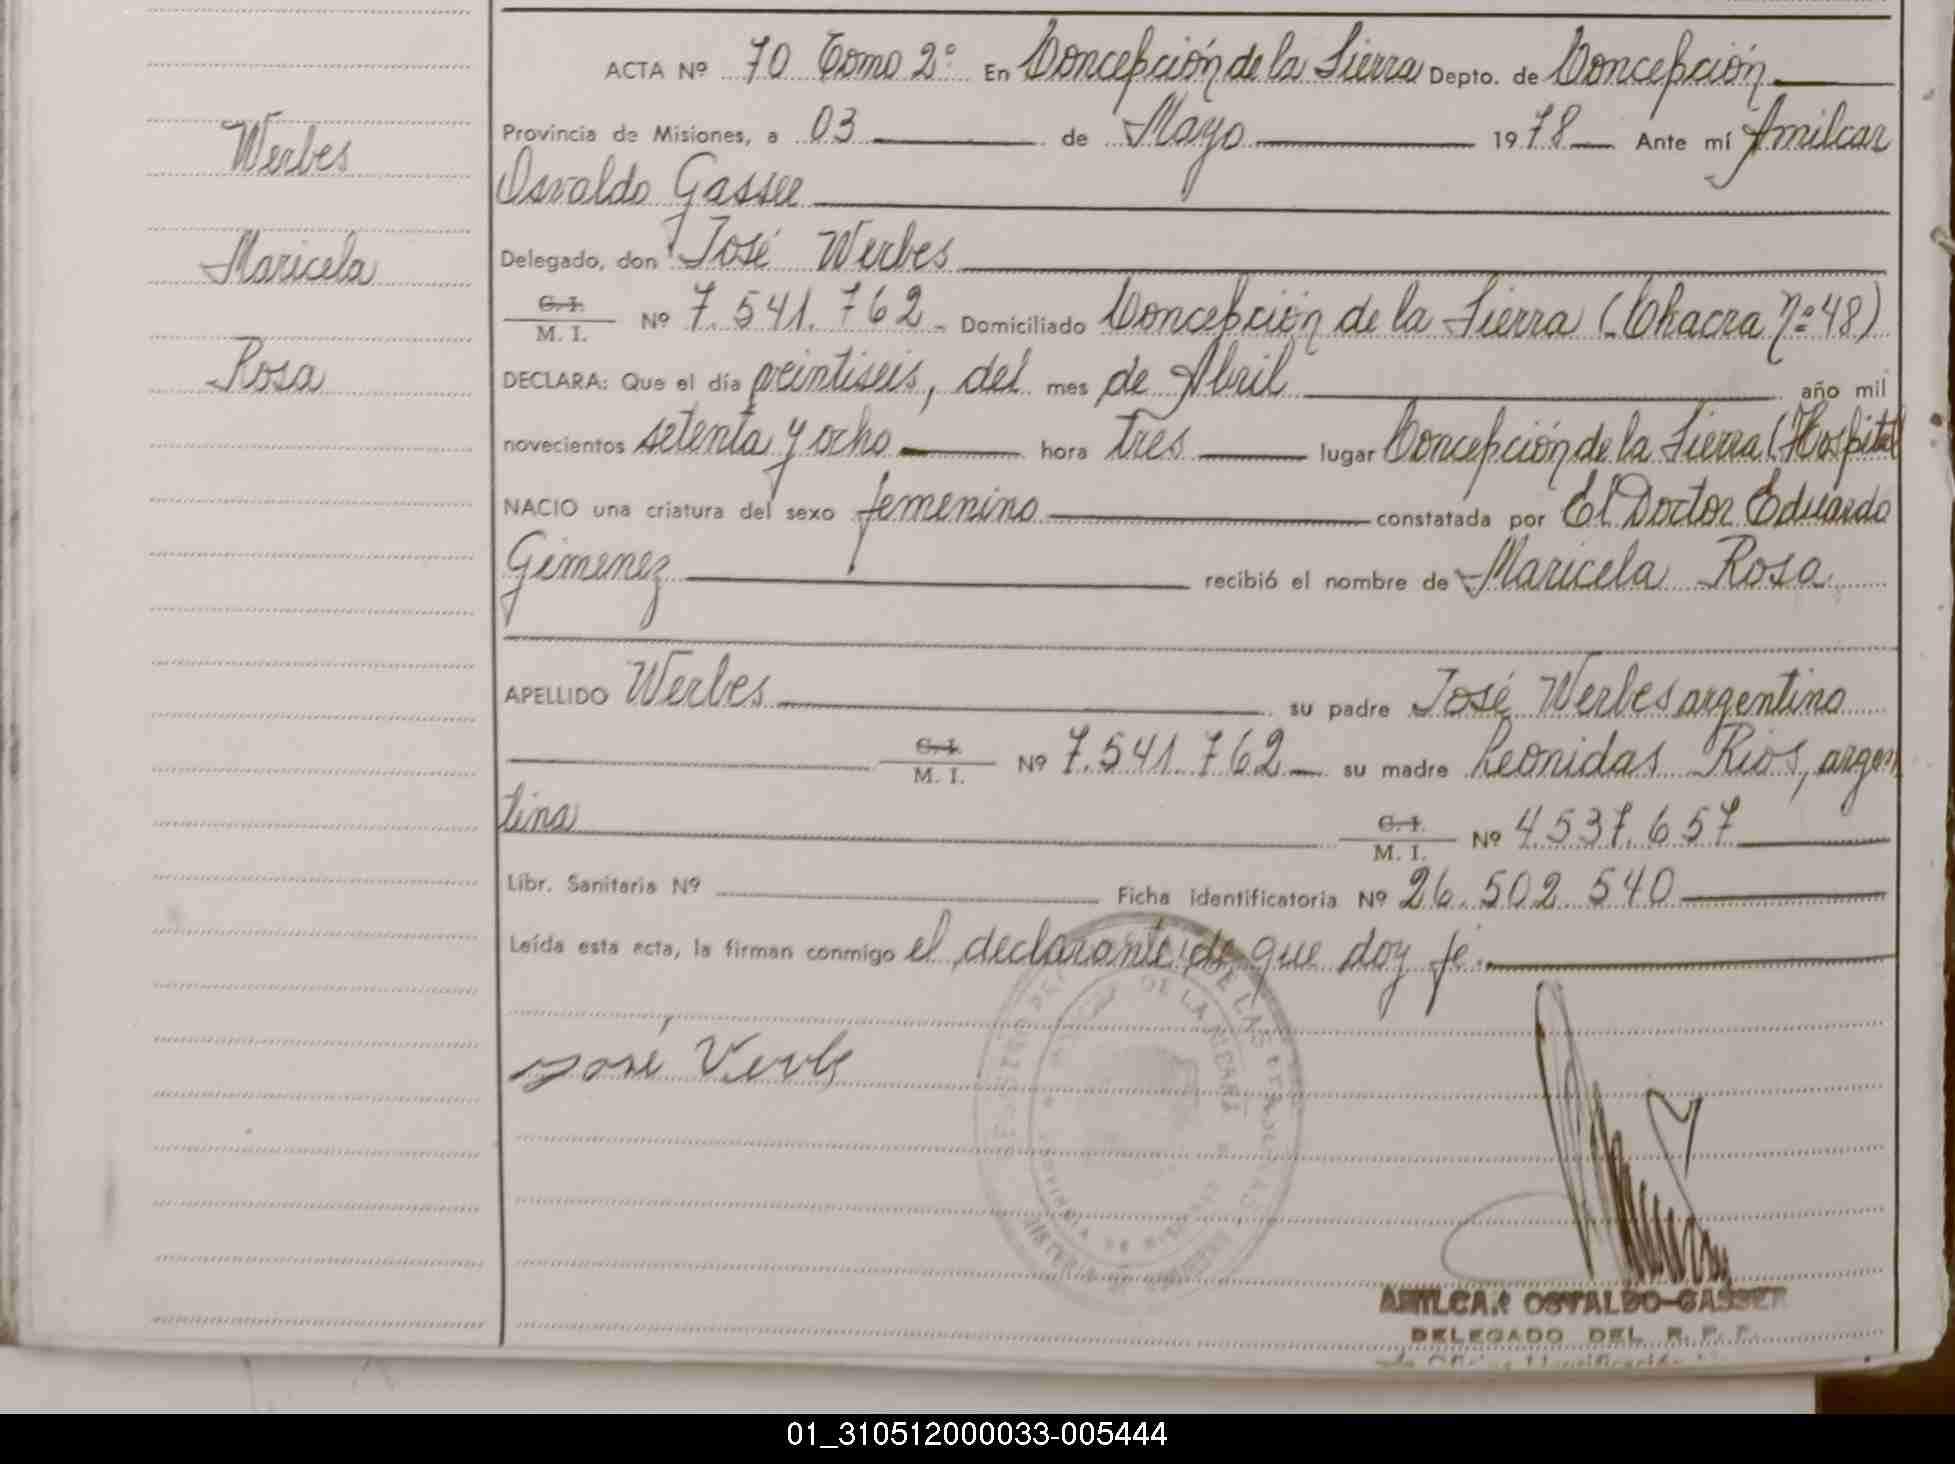 ACTA Nº 70 Tomo 2º En Concepción de la Sierra Depto. de Concepción
Provincia de Misiones, a 03 de Mayo 1978 Ante mí Amilcar
Osvaldo Gasser
Werbes
Delegado, don José Werbes
Maricela
C. I.
M. I. Nº 7.541.762 Domiciliado Concepción de la Sierra (Chacra nº 48)
Rosa
DECLARA: Que el día veintiseis, del mes de Abril año mil
novecientos setenta y ocho hora tres lugar Concepción de la Sierra (Hospital
NACIO una criatura del sexo femenino constatada por El Doctor Eduardo
Gimenez recibió el nombre de Maricela Rosa
APELLIDO Werbes su padre José Werbes argentino
C. I.
M. I. Nº 7.541.762 su madre Leonidas Rios, argen
tina C. I.
M. I. Nº 4.537.657
Libr. Sanitaria Nº Ficha identificatoria Nº 26.502.540
Leída esta acta, la firman conmigo el declarante de que doy fé.
José Verbs
DE LAS
DE LA
PROVINCIA DE MISIONES
AMILCAR OSVALDO GASSER
DELEGADO DEL R. P. P.
01_310512000033-005444